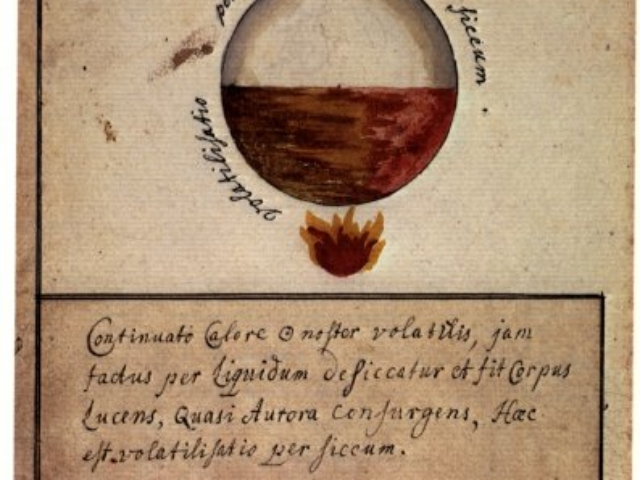 siccum
volatilisatio
Continuato Calore ☉ noster volatilis, jam
factus per Liquidum desiccatur et fit Corpus
Lucens, Quasi Aurora Consurgens, Hæc
est volatilisatio per siccum.